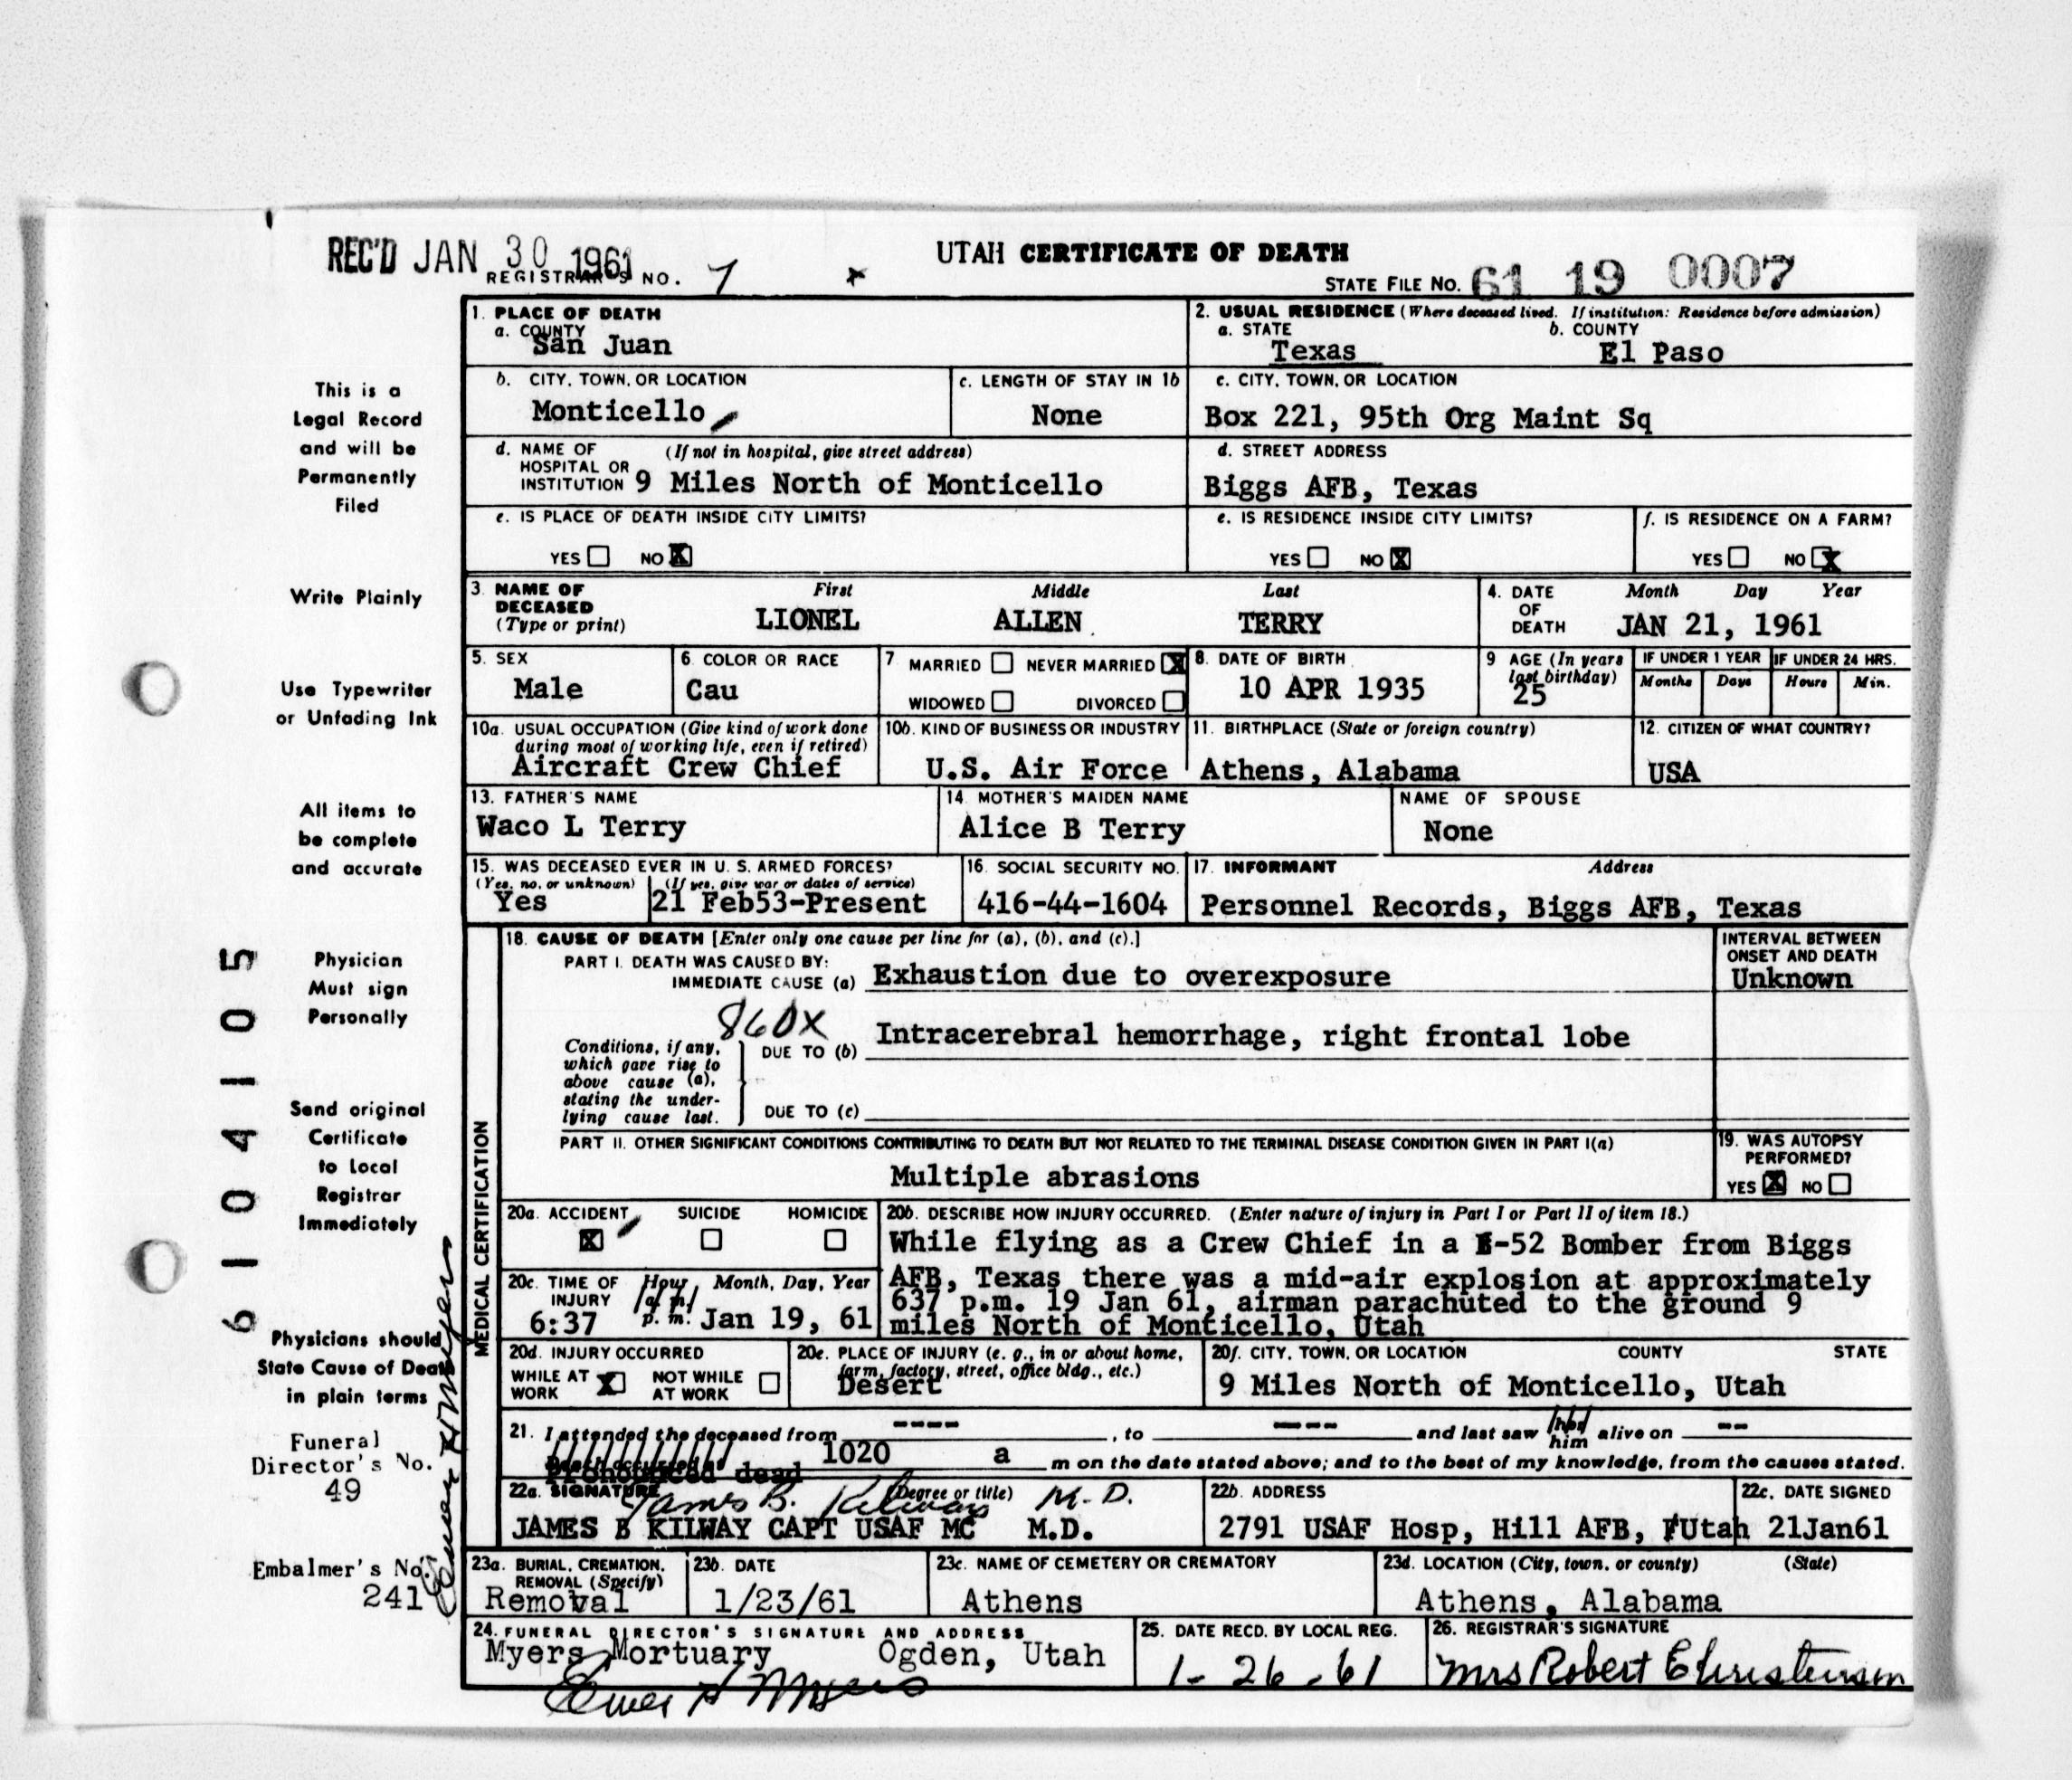 REC'D JAN 30 1961
UTAH CERTIFICATE OF DEATH
REGISTRAR'S NO. 7
STATE FILE NO. 61 19 0007
This is a
Legal Record
and will be
Permanently
Filed
Write Plainly
Use Typewriter
or Unfading Ink
All items to
be complete
and accurate
Physician
Must sign
Personally
Send original
Certificate
to Local
Registrar
Immediately
Physicians should
State Cause of Death
in plain terms
Funeral
Director's No.
49
Embalmer's No.
241
6104105
1. PLACE OF DEATH
a. COUNTY
San Juan
2. USUAL RESIDENCE (Where deceased lived. If institution: Residence before admission)
a. STATE b. COUNTY
Texas El Paso
b. CITY, TOWN, OR LOCATION
Monticello
c. LENGTH OF STAY IN 1b
None
c. CITY, TOWN, OR LOCATION
Box 221, 95th Org Maint Sq
d. NAME OF (If not in hospital, give street address)
HOSPITAL OR
INSTITUTION 9 Miles North of Monticello
d. STREET ADDRESS
Biggs AFB, Texas
e. IS PLACE OF DEATH INSIDE CITY LIMITS?
YES NO X
e. IS RESIDENCE INSIDE CITY LIMITS?
YES NO X
f. IS RESIDENCE ON A FARM?
YES NO X
3. NAME OF DECEASED (Type or print)
First Middle Last
LIONEL ALLEN TERRY
4. DATE OF DEATH Month Day Year
JAN 21, 1961
5. SEX
Male
6. COLOR OR RACE
Cau
7 MARRIED NEVER MARRIED X
WIDOWED DIVORCED
8. DATE OF BIRTH
10 APR 1935
9 AGE (In years last birthday)
25
IF UNDER 1 YEAR IF UNDER 24 HRS.
Months Days Hours Min.
10a. USUAL OCCUPATION (Give kind of work done during most of working life, even if retired)
Aircraft Crew Chief
10b. KIND OF BUSINESS OR INDUSTRY
U.S. Air Force
11. BIRTHPLACE (State or foreign country)
Athens, Alabama
12. CITIZEN OF WHAT COUNTRY?
USA
13. FATHER'S NAME
Waco L Terry
14. MOTHER'S MAIDEN NAME
Alice B Terry
NAME OF SPOUSE
None
15. WAS DECEASED EVER IN U. S. ARMED FORCES?
(Yes, no, or unknown) (If yes, give war or dates of service)
Yes 21 Feb53-Present
16. SOCIAL SECURITY NO.
416-44-1604
17. INFORMANT Address
Personnel Records, Biggs AFB, Texas
MEDICAL CERTIFICATION
18. CAUSE OF DEATH [Enter only one cause per line for (a), (b), and (c).]
PART I. DEATH WAS CAUSED BY:
IMMEDIATE CAUSE (a) Exhaustion due to overexposure
INTERVAL BETWEEN
ONSET AND DEATH
Unknown
860X
Conditions, if any,
which gave rise to
above cause (a),
stating the under-
lying cause last.
DUE TO (b) Intracerebral hemorrhage, right frontal lobe
DUE TO (c)
PART II. OTHER SIGNIFICANT CONDITIONS CONTRIBUTING TO DEATH BUT NOT RELATED TO THE TERMINAL DISEASE CONDITION GIVEN IN PART I(a)
Multiple abrasions
19. WAS AUTOPSY
PERFORMED?
YES X NO
20a. ACCIDENT SUICIDE HOMICIDE
X
20b. DESCRIBE HOW INJURY OCCURRED. (Enter nature of injury in Part I or Part II of item 18.)
While flying as a Crew Chief in a B-52 Bomber from Biggs
AFB, Texas there was a mid-air explosion at approximately
637 p.m. 19 Jan 61, airman parachuted to the ground 9
miles North of Monticello, Utah
20c. TIME OF INJURY Hour Month, Day, Year
a. m.
6:37 p. m. Jan 19, 61
20d. INJURY OCCURRED
WHILE AT WORK X NOT WHILE AT WORK
20e. PLACE OF INJURY (e. g., in or about home, farm, factory, street, office bldg., etc.)
Desert
20f. CITY, TOWN, OR LOCATION COUNTY STATE
9 Miles North of Monticello, Utah
21. I attended the deceased from ----, to ---- and last saw her him alive on --
Death occurred at
Pronounced dead 1020 a m on the date stated above; and to the best of my knowledge, from the causes stated.
22a. SIGNATURE (Degree or title)
James B. Kilway M.D.
JAMES B KILWAY CAPT USAF MC M.D.
22b. ADDRESS
2791 USAF Hosp, Hill AFB, Utah
22c. DATE SIGNED
21Jan61
23a. BURIAL, CREMATION, REMOVAL (Specify)
Removal
23b. DATE
1/23/61
23c. NAME OF CEMETERY OR CREMATORY
Athens
23d. LOCATION (City, town, or county) (State)
Athens, Alabama
24. FUNERAL DIRECTOR'S SIGNATURE AND ADDRESS
Myers Mortuary Ogden, Utah
Elmer H Myers
25. DATE RECD. BY LOCAL REG.
1-26-61
26. REGISTRAR'S SIGNATURE
Mrs Robert E Christensen
Elmer H Myers